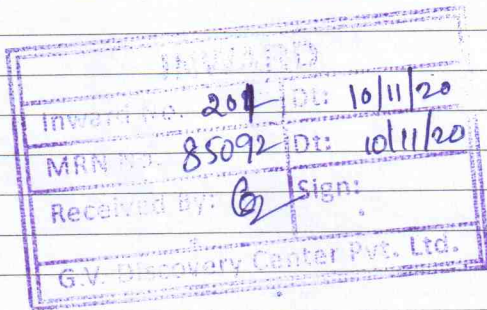 INWARD
Inward No. 201 Dt: 10/11/20
MRN No. 85092 Dt: 10/11/20
Received By: Sign:
G.V. Discovery Center Pvt. Ltd.